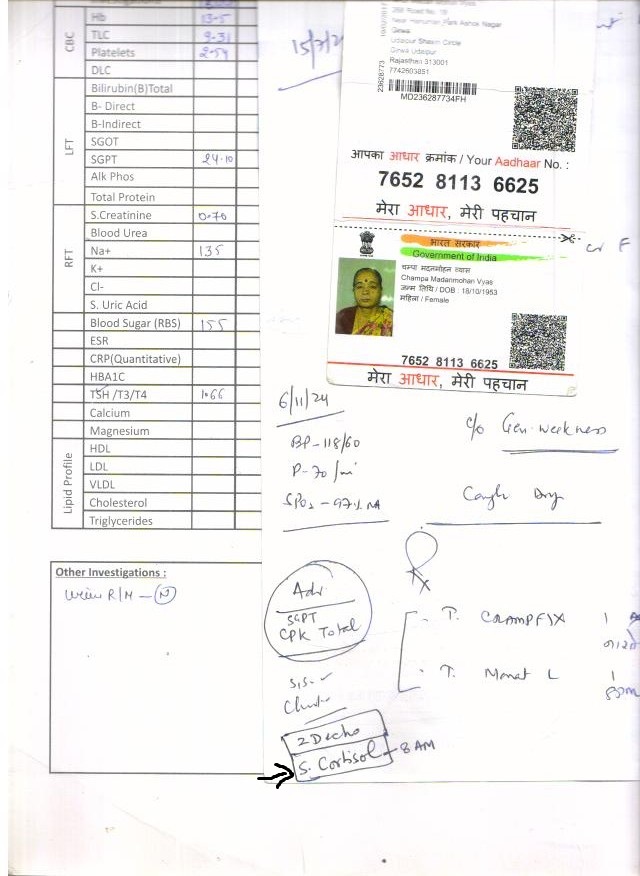 CBC
Hb 13.5
TLC 9.31
Platelets 2.59
DLC
LFT
Bilirubin(B)Total
B- Direct
B-Indirect
SGOT
SGPT 24.10
Alk Phos
Total Protein
RFT
S.Creatinine 0.70
Blood Urea
Na+ 135
K+
Cl-
S. Uric Acid
Blood Sugar (RBS) 155
ESR
CRP(Quantitative)
HBA1C
TSH /T3/T4 1.66
Calcium
Magnesium
Lipid Profile
HDL
LDL
VLDL
Cholesterol
Triglycerides
Other Investigations :
Urine R/M - (N)
Near Hanuman Park Ashok Nagar
Girwa
Udaipur Shastri Circle
Girwa Udaipur
Rajasthan 313001
7742603851
23628773
MD236287734FH
आपका आधार क्रमांक / Your Aadhaar No. :
7652 8113 6625
मेरा आधार, मेरी पहचान
भारत सरकार
Government of India
चम्पा मदनमोहन व्यास
Champa Madanmohan Vyas
जन्म तिथि / DOB : 18/10/1953
महिला / Female
7652 8113 6625
मेरा आधार, मेरी पहचान
6/11/24
BP - 118/60
P - 70 /mi
SPO2 - 97% RA
c/o Gen. weakness
Cough Dry
Rx
Adv
SGPT
CPK Total
T. CRAMPFIX 1
T. Monat L 1
2Decho
S. Cortisol - 8 AM